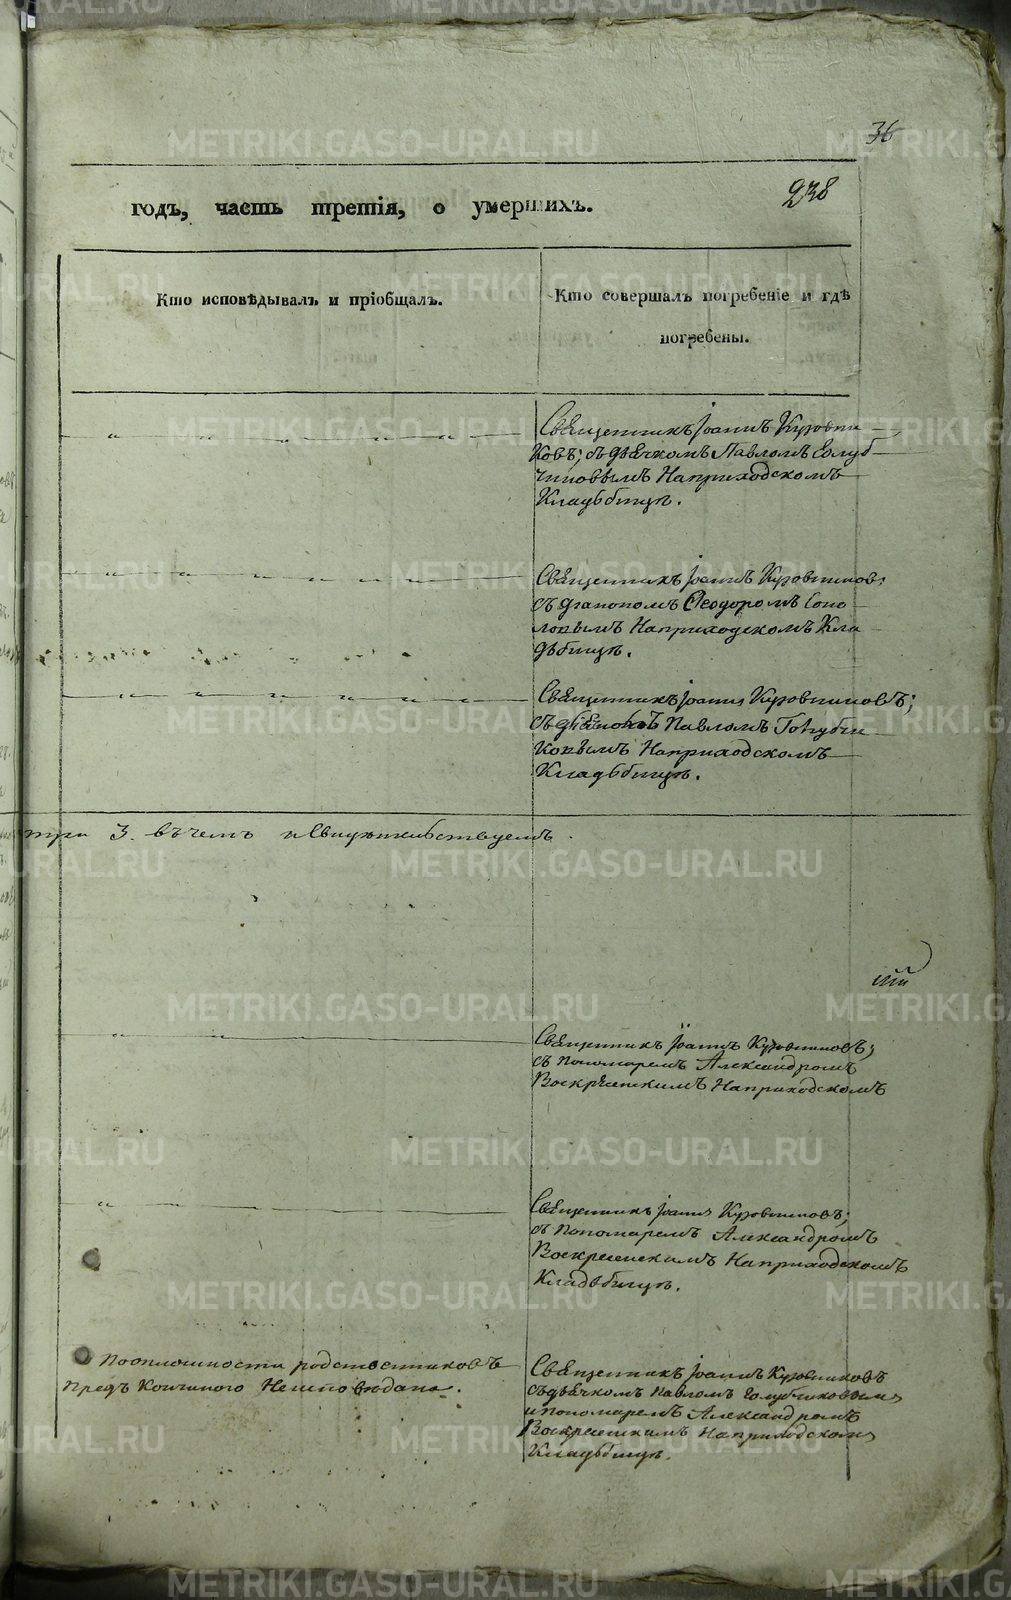 36
238
годъ, часть третія, о умершихъ.
Кто исповѣдывалъ и пріобщалъ.
Кто совершалъ погребеніе и гдѣ
погребены.
Священникъ Іоаннъ Куровни
ковъ; съ дьячкомъ Павломъ Голуб
чиковымъ На приходскомъ
Кладьбищѣ.
Священникъ Іоаннъ Куровниковъ;
съ діакономъ Феодоромъ Соко
ловымъ На приходскомъ Кла
дьбищѣ.
Священникъ Іоаннъ Куровниковъ;
съ Павломъ Голубчи
ковымъ На приходскомъ
Кладьбищѣ.
три 3. въ чемъ и свидѣтельствуемъ.
Священникъ Іоаннъ Куровниковъ;
съ пономаремъ Александромъ
Воскресенскимъ На приходскомъ
Священникъ Іоаннъ Куровниковъ;
съ пономаремъ Александромъ
Воскресенскимъ На приходскомъ
Кладбищѣ.
По оплошности родственниковъ
предъ кончиною Неисповѣдана.
Священникъ Іоаннъ Куровниковъ
съ дьячкомъ Павломъ Голубчиковымъ
и пономаремъ Александромъ
Воскресенскимъ На приходскомъ
Кладьбищѣ.
METRIKI.GASO-URAL.RU